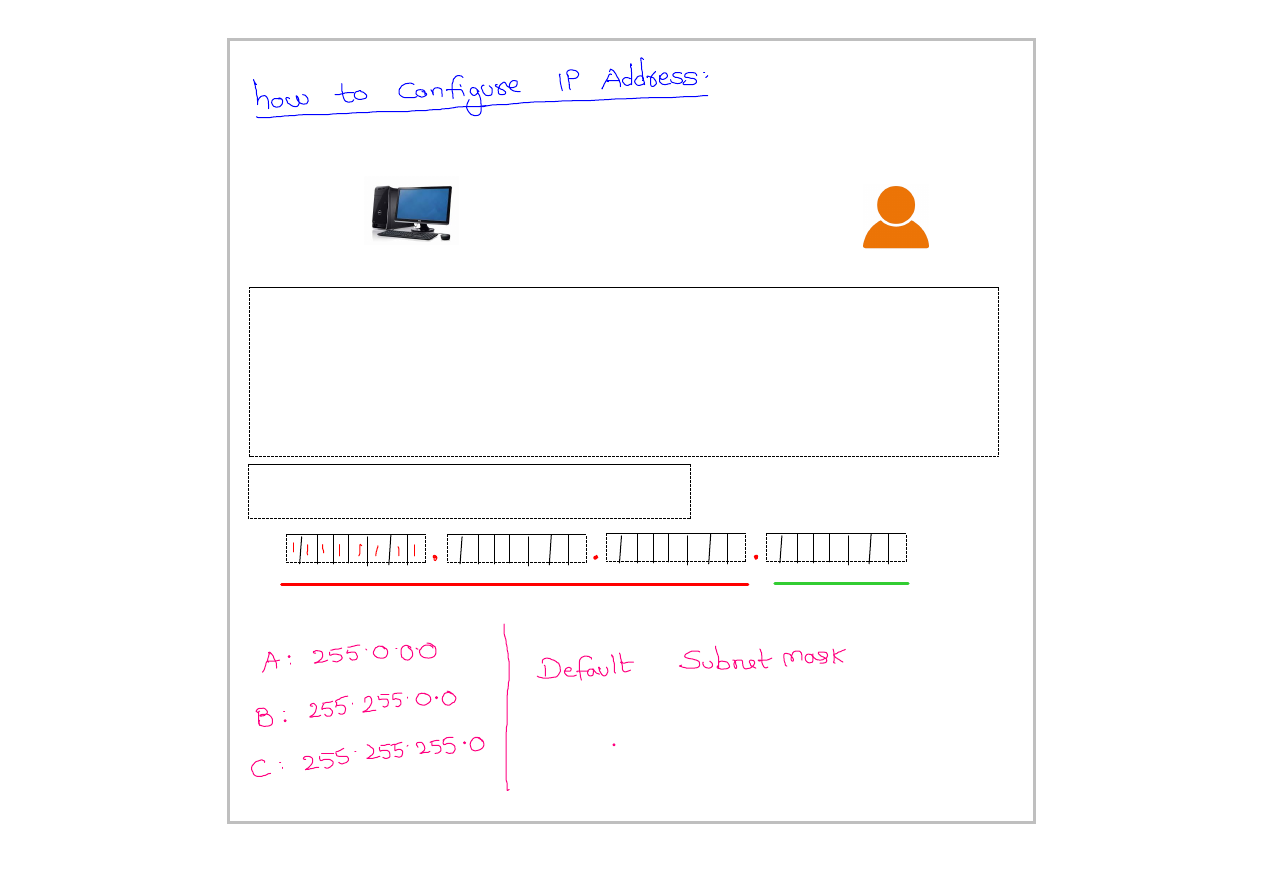 how to Configure IP Address:
1 1 1 1 1 1 1 1 . . .
A: 255.0.0.0
B: 255.255.0.0
C: 255.255.255.0
Default Subnet mask